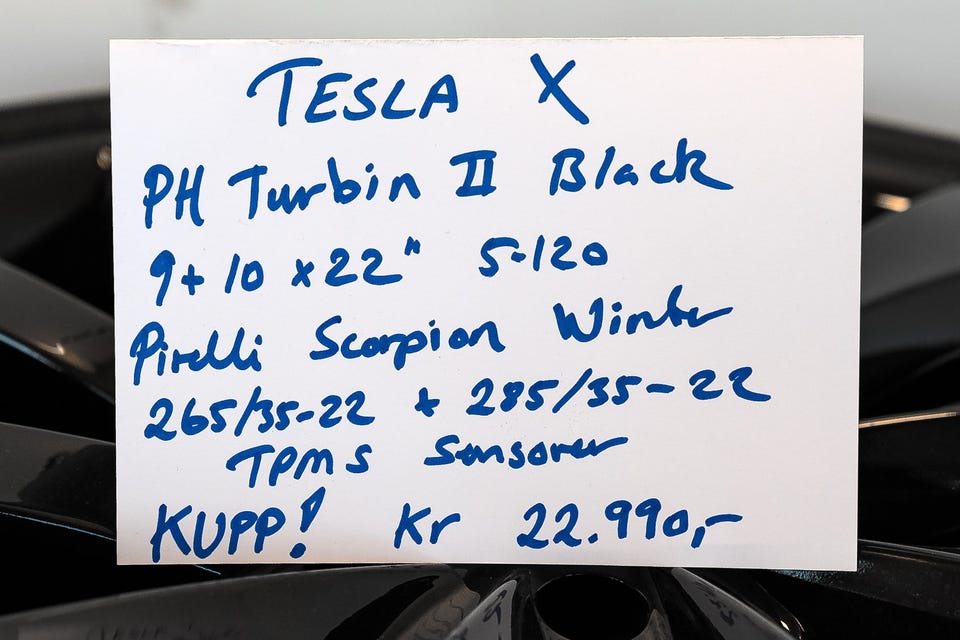 TESLA X
PH Turbin II Black
9+10 x22" 5-120
Pirelli Scorpion Winter
265/35-22 + 285/35-22
TPMS Sensorer
KUPP! Kr 22.990,-